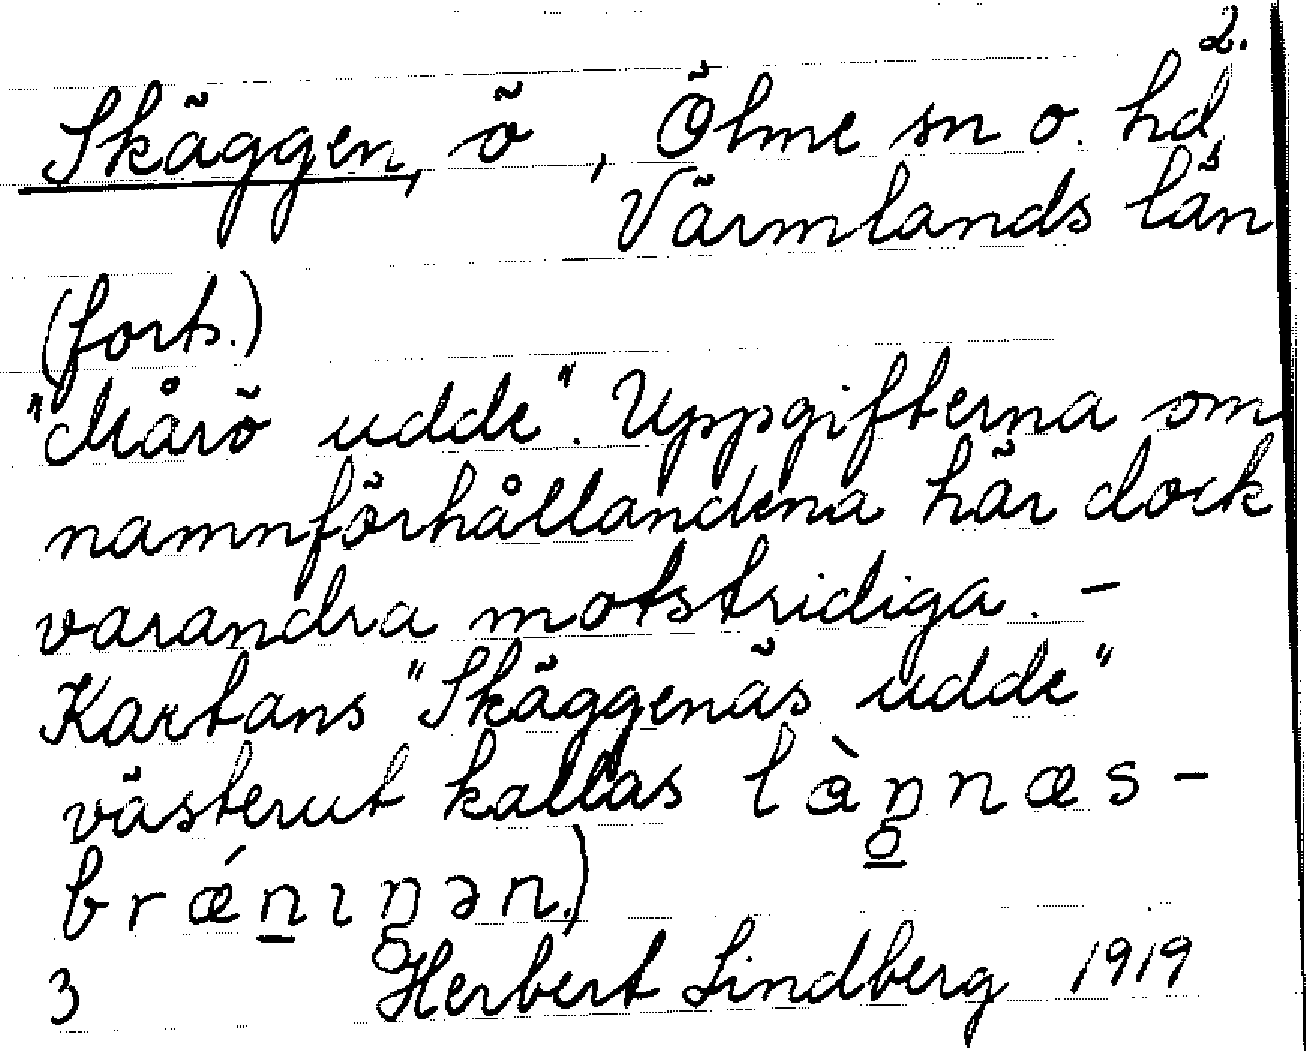 2.
Skäggen, ö , Ölme sn o. hd,
Värmlands län
(forts.)
"Mårö udde". Uppgifterna om
namnförhållandena här dock
varandra motstridiga. –
Kartans "Skäggenäs udde"
västerut kallas làŋ̱næs-
brǽn̲ıŋən.)
3 Herbert Lindberg 1919